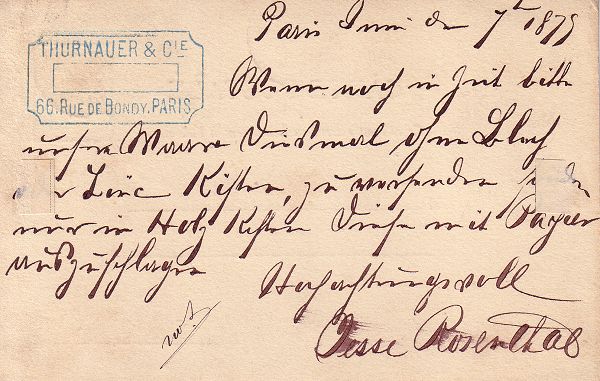 THURNAUER & CIE
66. RUE DE BONDY. PARIS
Paris Juni den 7t 1879
Wenn noch in Zeit bitte
unsere Waare Diesmal ohne Blech
Zinc Kisten, zu versenden
nur in Holz Kisten Diese mit Papier
auszuschlagen
Hochachtungsvoll
Jesse Rosenthal